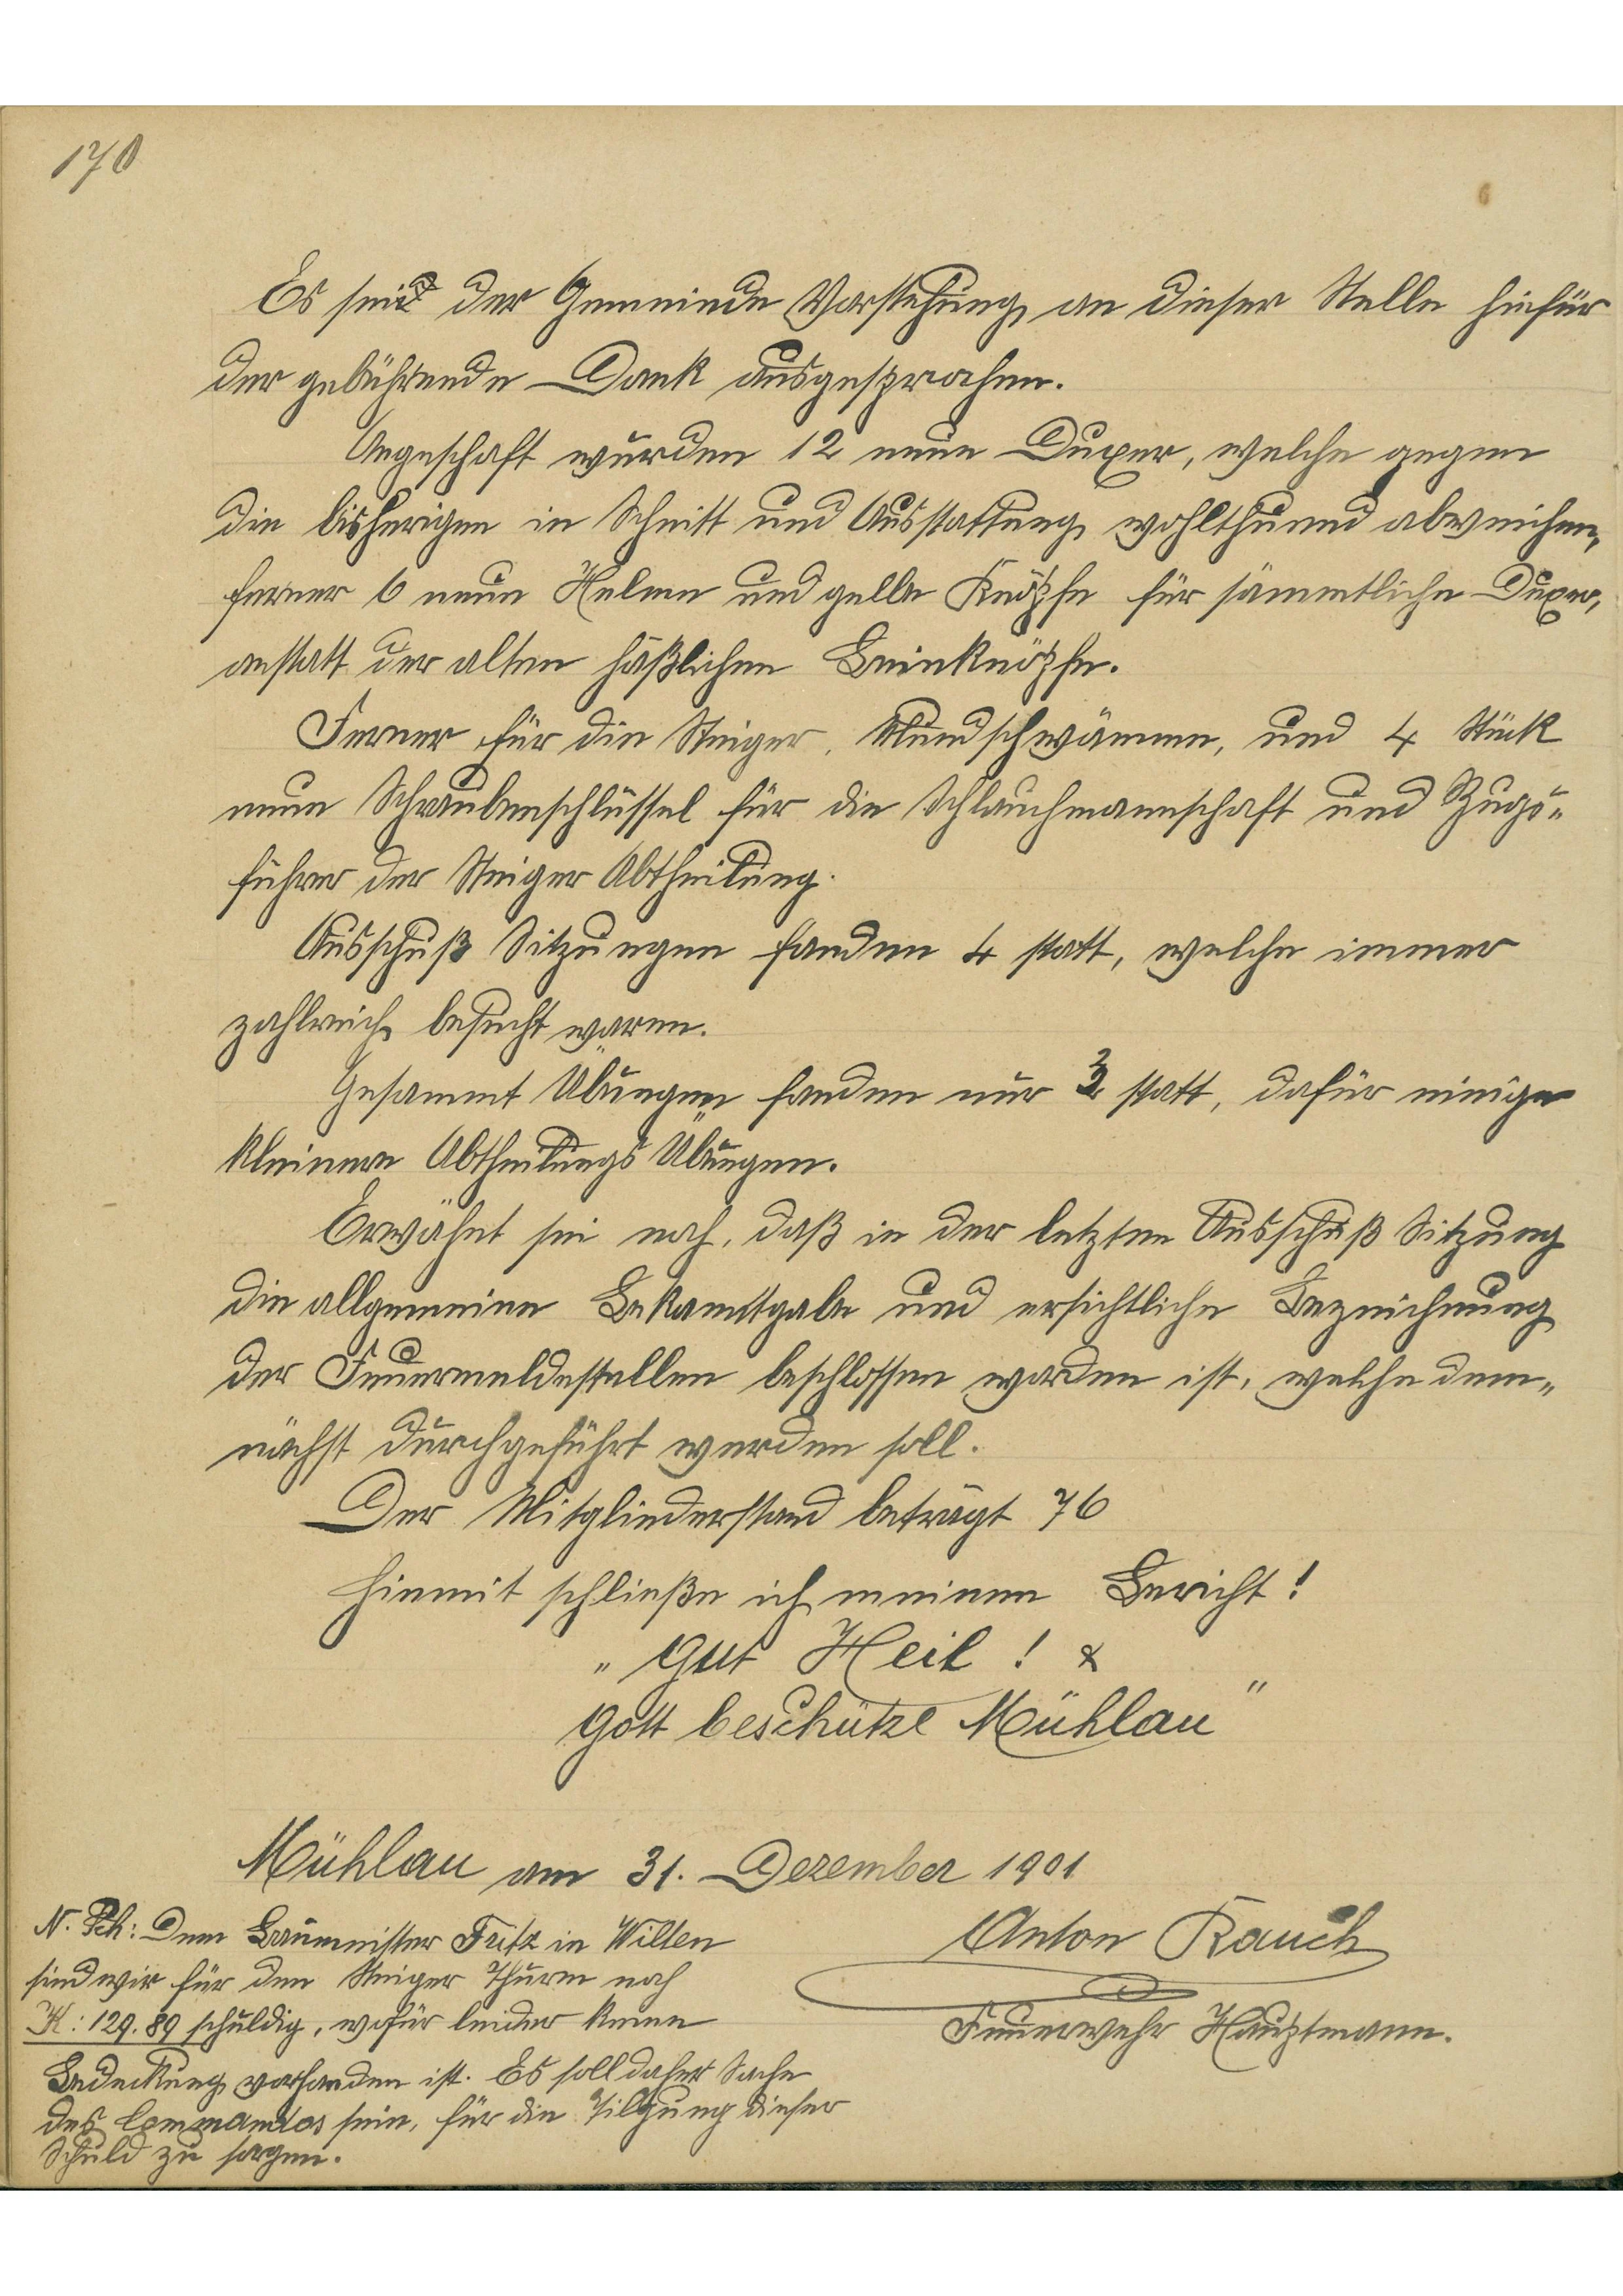 170
Es sei der Gemeinde Vorstehung an dieser Stelle hiefür
der gebührende Dank ausgesprochen.
Angeschaft wurden 12 neue Duxer, welche gegen
die bisherigen in Schnitt und Ausstattung wohlthuend abweichen,
ferner 6 neue Helme und gelbe Knöpfe für sämmtliche Duxer,
anstatt der alten häßlichen Beinknöpfe.
Ferner für die Steiger, Mundschwämme, und 4 Stück
neue Schraubenschlüssel für die Schlauchmannschaft und Zugs„
führer der Steiger Abtheilung.
Ausschuß Sitzungen fanden 4 statt, welche immer
zahlreich besucht waren.
Gesammt Übungen fanden nur statt, dafür einige
kleinere Abtheilungs Übungen.
Erwähnt sei noch, daß in der letzten Ausschuß Sitzung
die allgemeine Bekanntgabe und ersichtliche Bezeichnung
der Feuermeldestellen beschlossen worden ist, welche dem„
nächst durchgeführt werden soll.
Der Mitgliederstand beträgt 76
Hiemit schließe ich meinen Bericht!
„Gut Heil! &
Gott beschütze Mühlau"
Mühlau am 31. Dezember 1901
Anton Rauch
Feuerwehr Hauptmann.
N. Sch: Dem Baumeister Fritz in Wilten
sind wir für den Steiger Thurm noch
K: 129.89 schuldig, wofür leider keine
Bedeckung vorhanden ist. Es soll daher Sache
des Commandos sein, für die Tilgung dieser
Schuld zu sorgen.